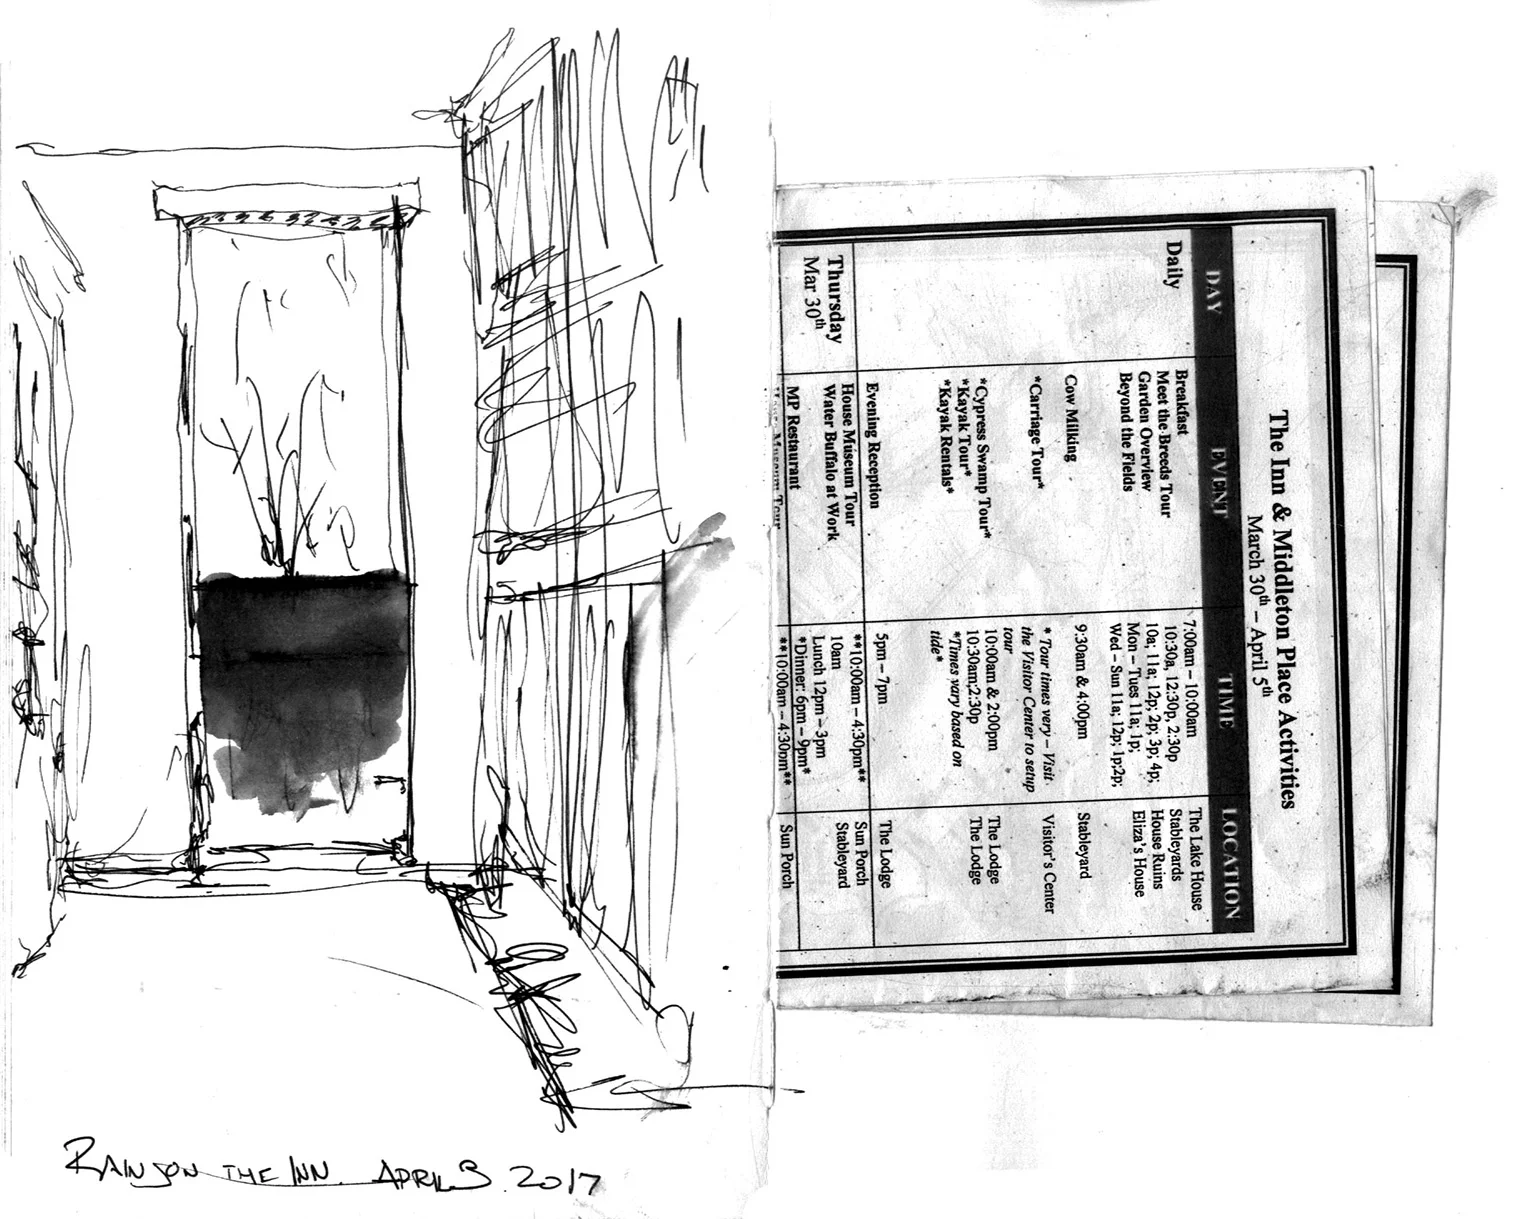 The Inn & Middleton Place Activities
March 30th – April 5th
DAY EVENT TIME LOCATION
Daily
Breakfast 7:00am – 10:00am The Lake House
Meet the Breeds Tour 10:30a, 12:30p, 2:30p Stableyards
Garden Overview 10a; 11a; 12p; 2p; 3p; 4p; House Ruins
Beyond the Fields Mon – Tues 11a; 1p; Eliza's House
Wed – Sun 11a; 12p; 1p;2p;
Cow Milking 9:30am & 4:00pm Stableyard
*Carriage Tour* * Tour times very – Visit Visitor's Center
the Visitor Center to setup
tour
*Cypress Swamp Tour* 10:00am & 2:00pm The Lodge
*Kayak Tour* 10:30am;2:30p The Lodge
*Kayak Rentals* *Times vary based on
tide*
Evening Reception 5pm – 7pm The Lodge
Thursday
Mar 30th
House Museum Tour **10:00am – 4:30pm** Sun Porch
Water Buffalo at Work 10am Stableyard
Lunch 12pm – 3pm
MP Restaurant *Dinner: 6pm – 9pm*
House Museum Tour **10:00am – 4:30pm** Sun Porch
RAIN ON THE INN. APRIL 3. 2017